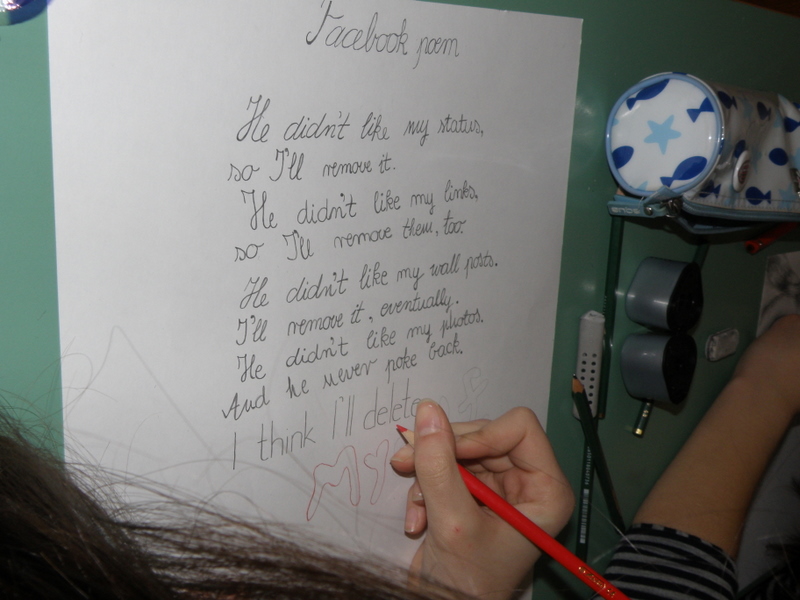 Facebook poem
He didn't like my status,
so I'll remove it.
He didn't like my links,
so I'll remove them, too.
He didn't like my wall posts.
I'll remove it, eventually.
He didn't like my photos.
And he never poke back.
I think I'll delete
My